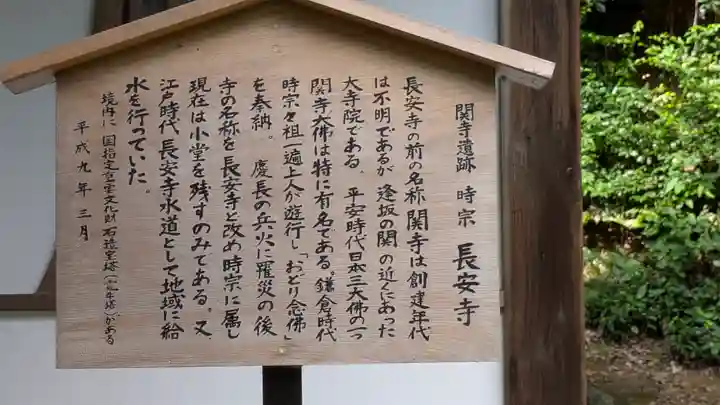 関寺遺跡 時宗 長安寺
長安寺の前の名称関寺は創建年代
は不明であるが 逢坂の関の近くにあった
大寺院である。平安時代日本三大佛の一つ
関寺大佛は特に有名である。鎌倉時代
時宗々祖一遍上人が遊行し「おどり念佛」
を奉納。 慶長の兵火に罹災の後
寺の名称を長安寺と改め時宗に属し
現在は小堂を残すのみである。又、
江戸時代 長安寺水道として地域に給
水を行っていた。
境内に 国指定重要文化財 石造宝塔(牛塔)がある
平成九年三月